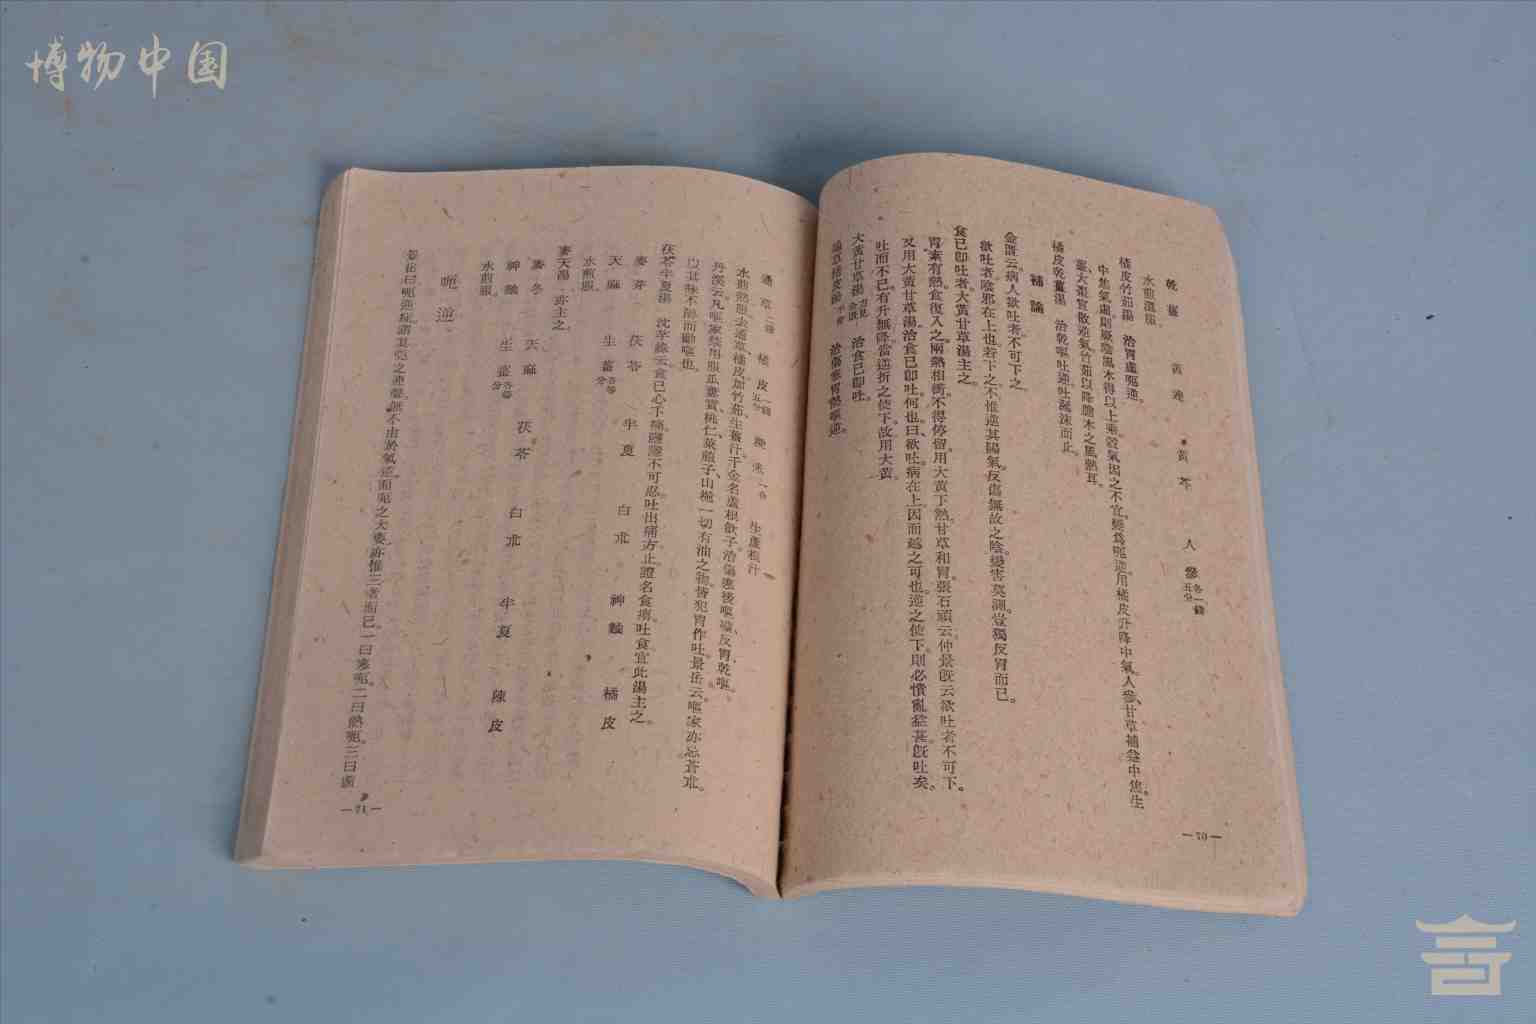 博物中国
乾薑 黃連 黃芩 人參各一錢五分
水煎溫服。
橘皮竹茹湯 治胃虛呃逆。
中焦氣虛則厥陰風木得以上乘。穀氣因之不宜。變爲呃逆。用橘皮升降中氣。人參、甘草補益中焦。生
薑、大棗宣散逆氣。竹茹以降膽木之風熱耳。
橘皮乾薑湯 治乾嘔吐逆。吐涎沫而止。
補論
金匱云。病人欲吐者。不可下之。
欲吐者。陰邪在上也。若下之。不惟逆其陽氣。反傷無故之陰。變害莫測。豈獨反胃而已。
食已卽吐者。大黃甘草湯主之。
胃素有熱。食復入之。兩熱相衝。不得停留。用大黃下熱。甘草和胃。張石頑云。仲景旣云欲吐者不可下。
又用大黃甘草湯。治食已卽吐。何也。曰欲吐。病在上。因而越之可也。逆之使下。則必憒亂益甚。旣吐矣。
吐而不已。有升無降。當逆折之使下。故用大黃。
大黃甘草湯 治食已卽吐。
通草橘皮湯 治傷寒胃熱嘔逆。
—70—
通草二錢 橘皮一錢五分 粳米一合 生蘆根汁
水煎熱服。去通草、橘皮。加竹茹、生薑汁。千金名蘆根飲子。治傷寒後嘔噦、反胃、乾嘔。
丹溪云。凡嘔家禁用服瓜蔞實、桃仁、萊菔子、山梔。一切有油之物。皆犯胃作吐。景岳云。嘔家亦忌蒼朮。
以其味不淸而動嘔也。
茯苓半夏湯 沈芊綠云。食已心下痛。隱隱不可忍。吐出痛方止。證名食痹。吐食。宜此湯主之。
麥芽 茯苓 半夏 白朮 神麯 橘皮
天麻 生薑各等分
水煎服。
麥天湯 亦主之。
麥冬 天麻 茯苓 白朮 半夏 陳皮
神麯 生薑各等分
水煎服。
呃逆
景岳曰。呃逆症。謂其呃之連聲。無不由於氣逆。而呃之大要。亦惟三者而已。一曰寒呃。二曰熱呃。三曰虛
—71—